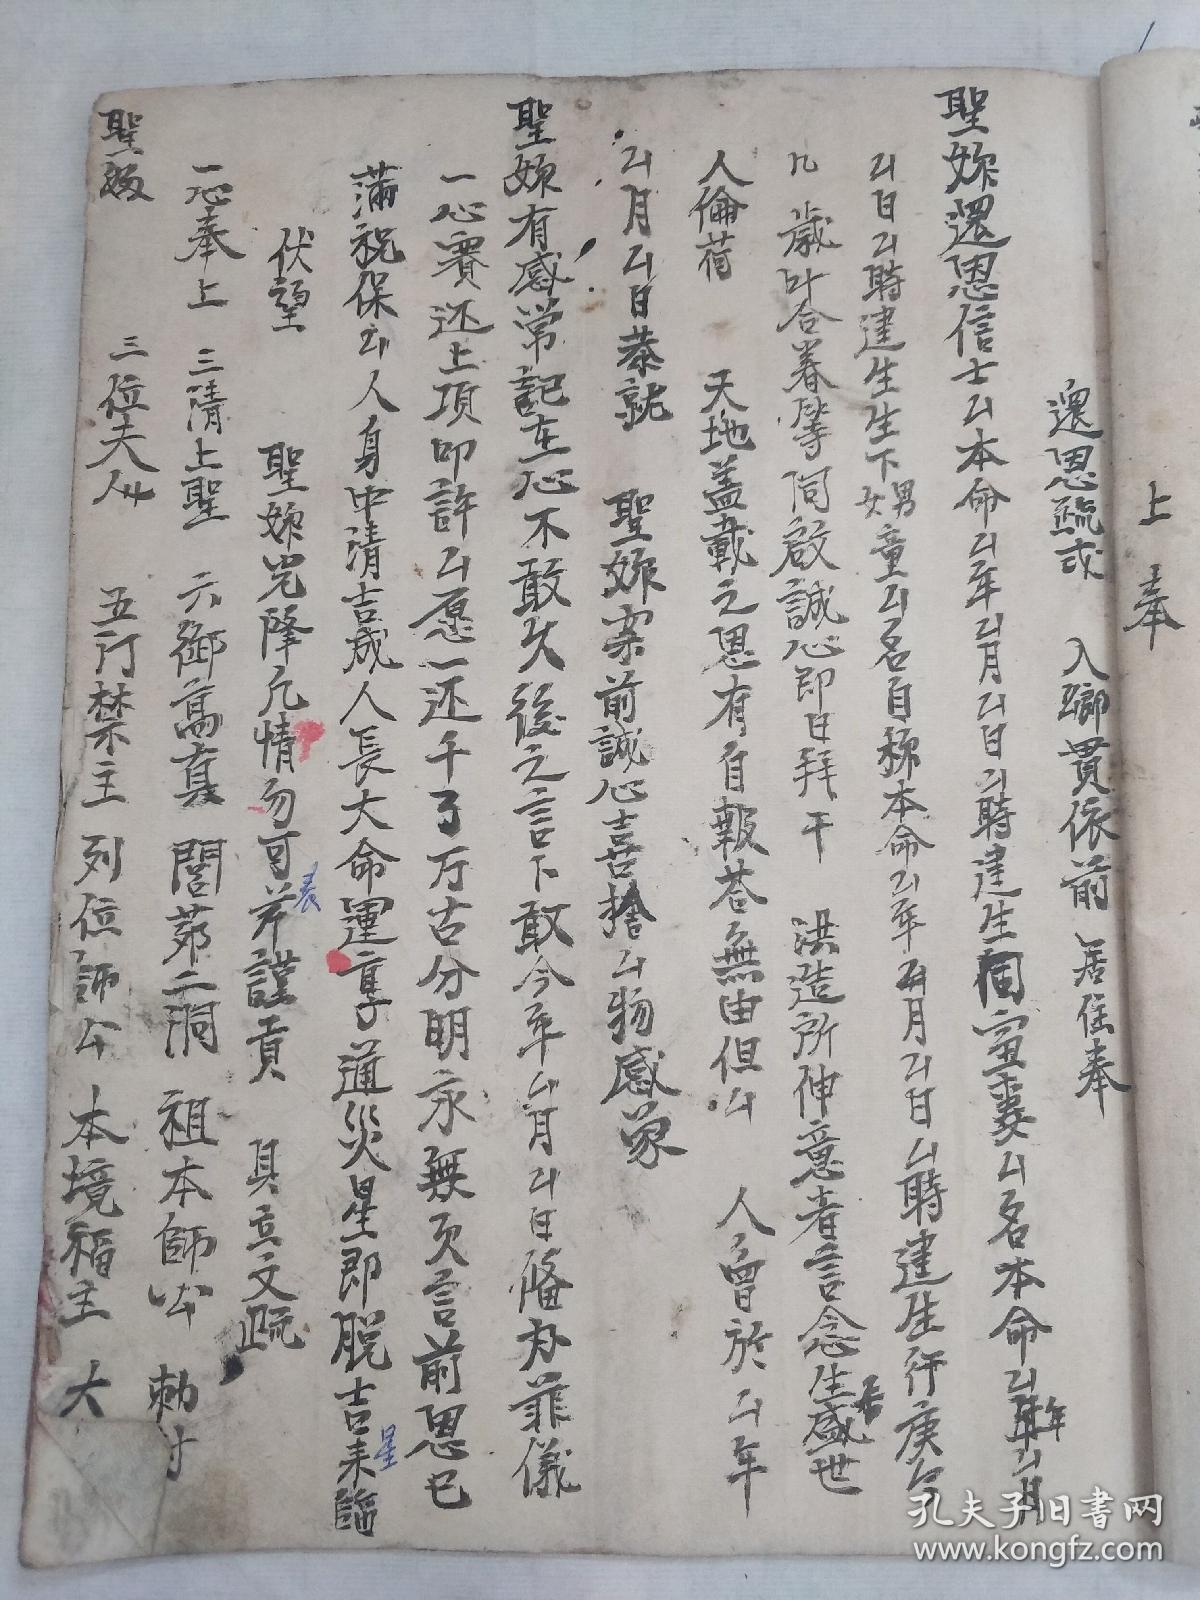 上奉
還恩疏式 入鄉貫依前 居住奉
聖妳還恩信士厶本命厶年厶月厶日厶時建生同室妻厶名本命厶年厶月
厶日厶時建生生下男女童厶名自称本命厶年厶月厶日厶時建生行庚
几歲叶合眷等同啟誠心即日拜干 洪造所伸意者言念生居盛世
人倫荷 天地盖載之恩有自報荅無由但厶 人曾於厶年
厶月厶日恭就 聖妳案前誠心喜捨厶物感蒙
聖妳有感常記在心不敢失後之言下敢今年厶月厶日脩办菲儀
一心賽还上項叩許厶愿一还千了万古分明永無欠言前恩已
滿祝保厶人身中清吉成人長大命運亨通災星即脱吉星來臨
伏望 聖妳光降凡情勿可弃謹責 具立文疏
一心奉上 三清上聖 六御高真 閭茆二洞 祖本師公 勅封
聖妳 三位夫人 五方禁主 列位師公 本境福主 大
孔夫子旧书网
www.kongfz.com